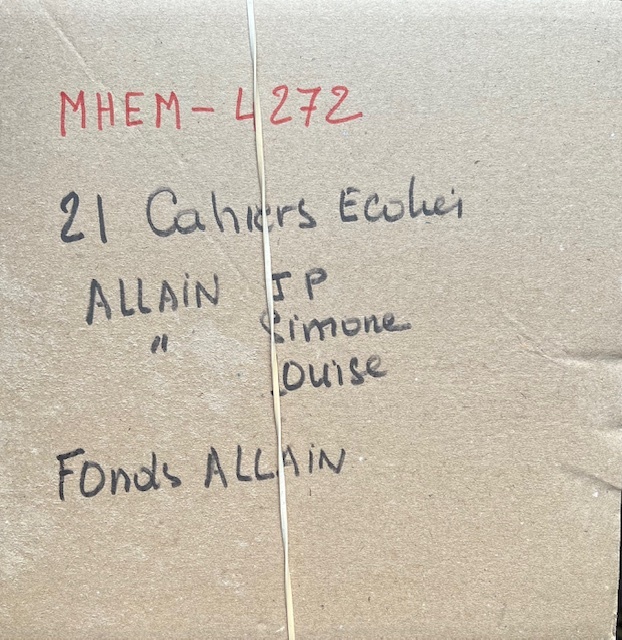 MHEM - 4272
21 Cahiers Ecolier
ALLAIN JP
" Simone
Louise
Fonds ALLAIN